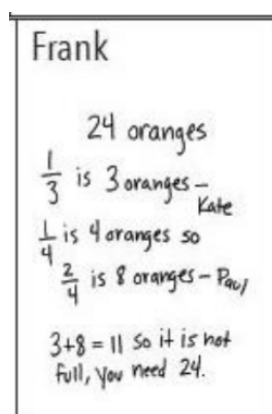 Frank
24 oranges
1/3 is 3 oranges –
Kate
1/4 is 4 oranges so
2/4 is 8 oranges – Paul
3+8 = 11 so it is not
full, you need 24.